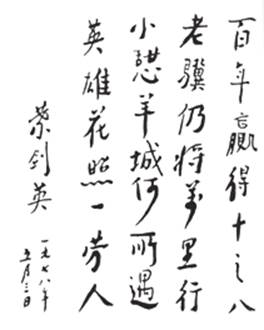 百年赢得十之八
老驥仍将萬里行
小憩羊城何所遇
英雄花照一劳人
葉剑英
一九七八年
五月三日